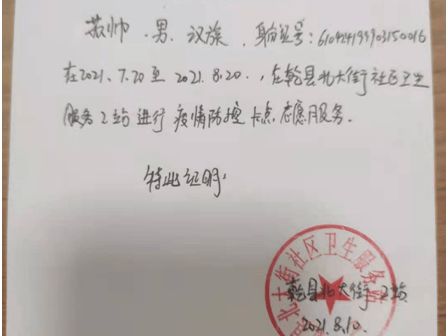 苏帅，男，汉族，身份证号：610424199903150016
在2021.7.20至2021.8.20.，在乾县北大街社区卫生
服务2站进行疫情防控卡点志愿服务.
特此证明：
北大街社区卫生服务站
乾县北大街 卫站
2021.8.10